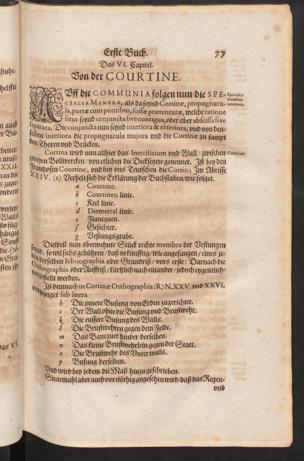 Erste Buch. 77
Das VI. Capitel.
Von der COURTINE.
Uff die COMMUNIA folgen nun die SPE-
CIALIA MEMBRA, als da seynd Cortinæ, propugnacu-
la, portæ cum pontibus,
sitæ seynd conjuncta sive contigua, oder aber abscissa sive
separata. Die conjuncta nun seynd interiora & exteriora, und von den-
selben interiora die propugnacula majora und die Cortinæ zu sampt
den Thoren und Brücken.
Cortina wird nun allhier das Interstitium und Wall / zwischen
zweyen Bollwercken / von etlichen die genennet. Ist bey den
Frantzosen Courtine, und bey uns Teutschen die Cortin: Im Abrisse
XXIV. (e) Verhelt sich die Erklärung der Buchstaben / wie folget.
a Courtine.
b Courtinen linie.
c Keel linie.
d Diometral linie.
e Flancquen.
f Gesichter.
g Vestungsgrabe.
Dieweil nun oberwehnte Stück rechte membra der Vestungen
seynd / so wil sichs gebühren / daß in künfftig / wie angefangen / eines je-
den derselben Ichnographia oder Grundriß / vors erste: Darnach die
Orthographia oder Auffriß / kürtzlich nach einander / jedoch eygentlich /
vorgestellet werden.
Ist demnach in Cortinæ Orthographia (R) N. XXV. und XXVI.
sub litera
h Die innere Busung von Erden zugerichtet.
i Der Wall ohne die Busung und Brustwehr.
k Die eussere Busung des Walls.
l Die Brustwehren gegen dem Felde.
m Das Bancquet hinder derselben.
n Das kleine Brustwehrlein gegen der Statt.
o Die Brustwehr des Unterwalls.
p Busung derselben.
Und wird bey jedem die Maß hinzu geschrieben.
Sintemahl aber auch vor nöthig angesehen wird / daß das Regen-